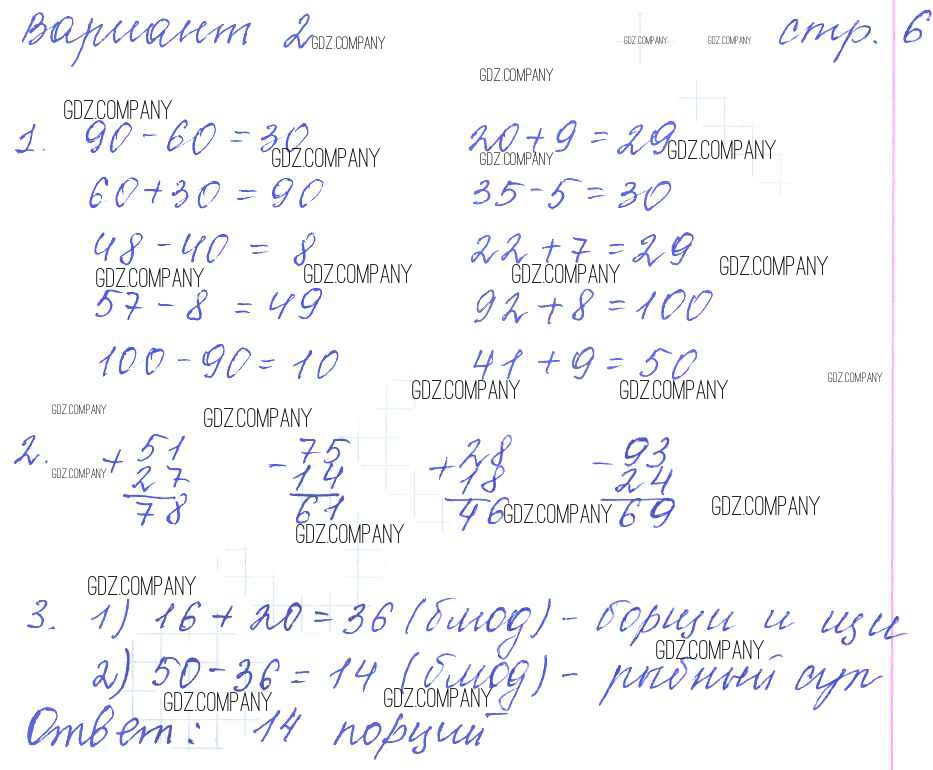 Вариант 2 стр. 6
GDZ.COMPANY GDZ.COMPANY GDZ.COMPANY
GDZ.COMPANY
GDZ.COMPANY
1. 90 - 60 = 30 20 + 9 = 29
GDZ.COMPANY GDZ.COMPANY GDZ.COMPANY
60 + 30 = 90 35 - 5 = 30
48 - 40 = 8 22 + 7 = 29
GDZ.COMPANY GDZ.COMPANY GDZ.COMPANY GDZ.COMPANY
57 - 8 = 49 92 + 8 = 100
100 - 90 = 10 41 + 9 = 50
GDZ.COMPANY GDZ.COMPANY GDZ.COMPANY
GDZ.COMPANY GDZ.COMPANY
2. + 51 - 75 + 28 - 93
GDZ.COMPANY 27 14 18 24
78 61 46 69
GDZ.COMPANY GDZ.COMPANY GDZ.COMPANY
GDZ.COMPANY
3. 1) 16 + 20 = 36 (блюд) - борщи и щи
GDZ.COMPANY
2) 50 - 36 = 14 (блюд) - рыбный суп
GDZ.COMPANY GDZ.COMPANY
Ответ: 14 порций